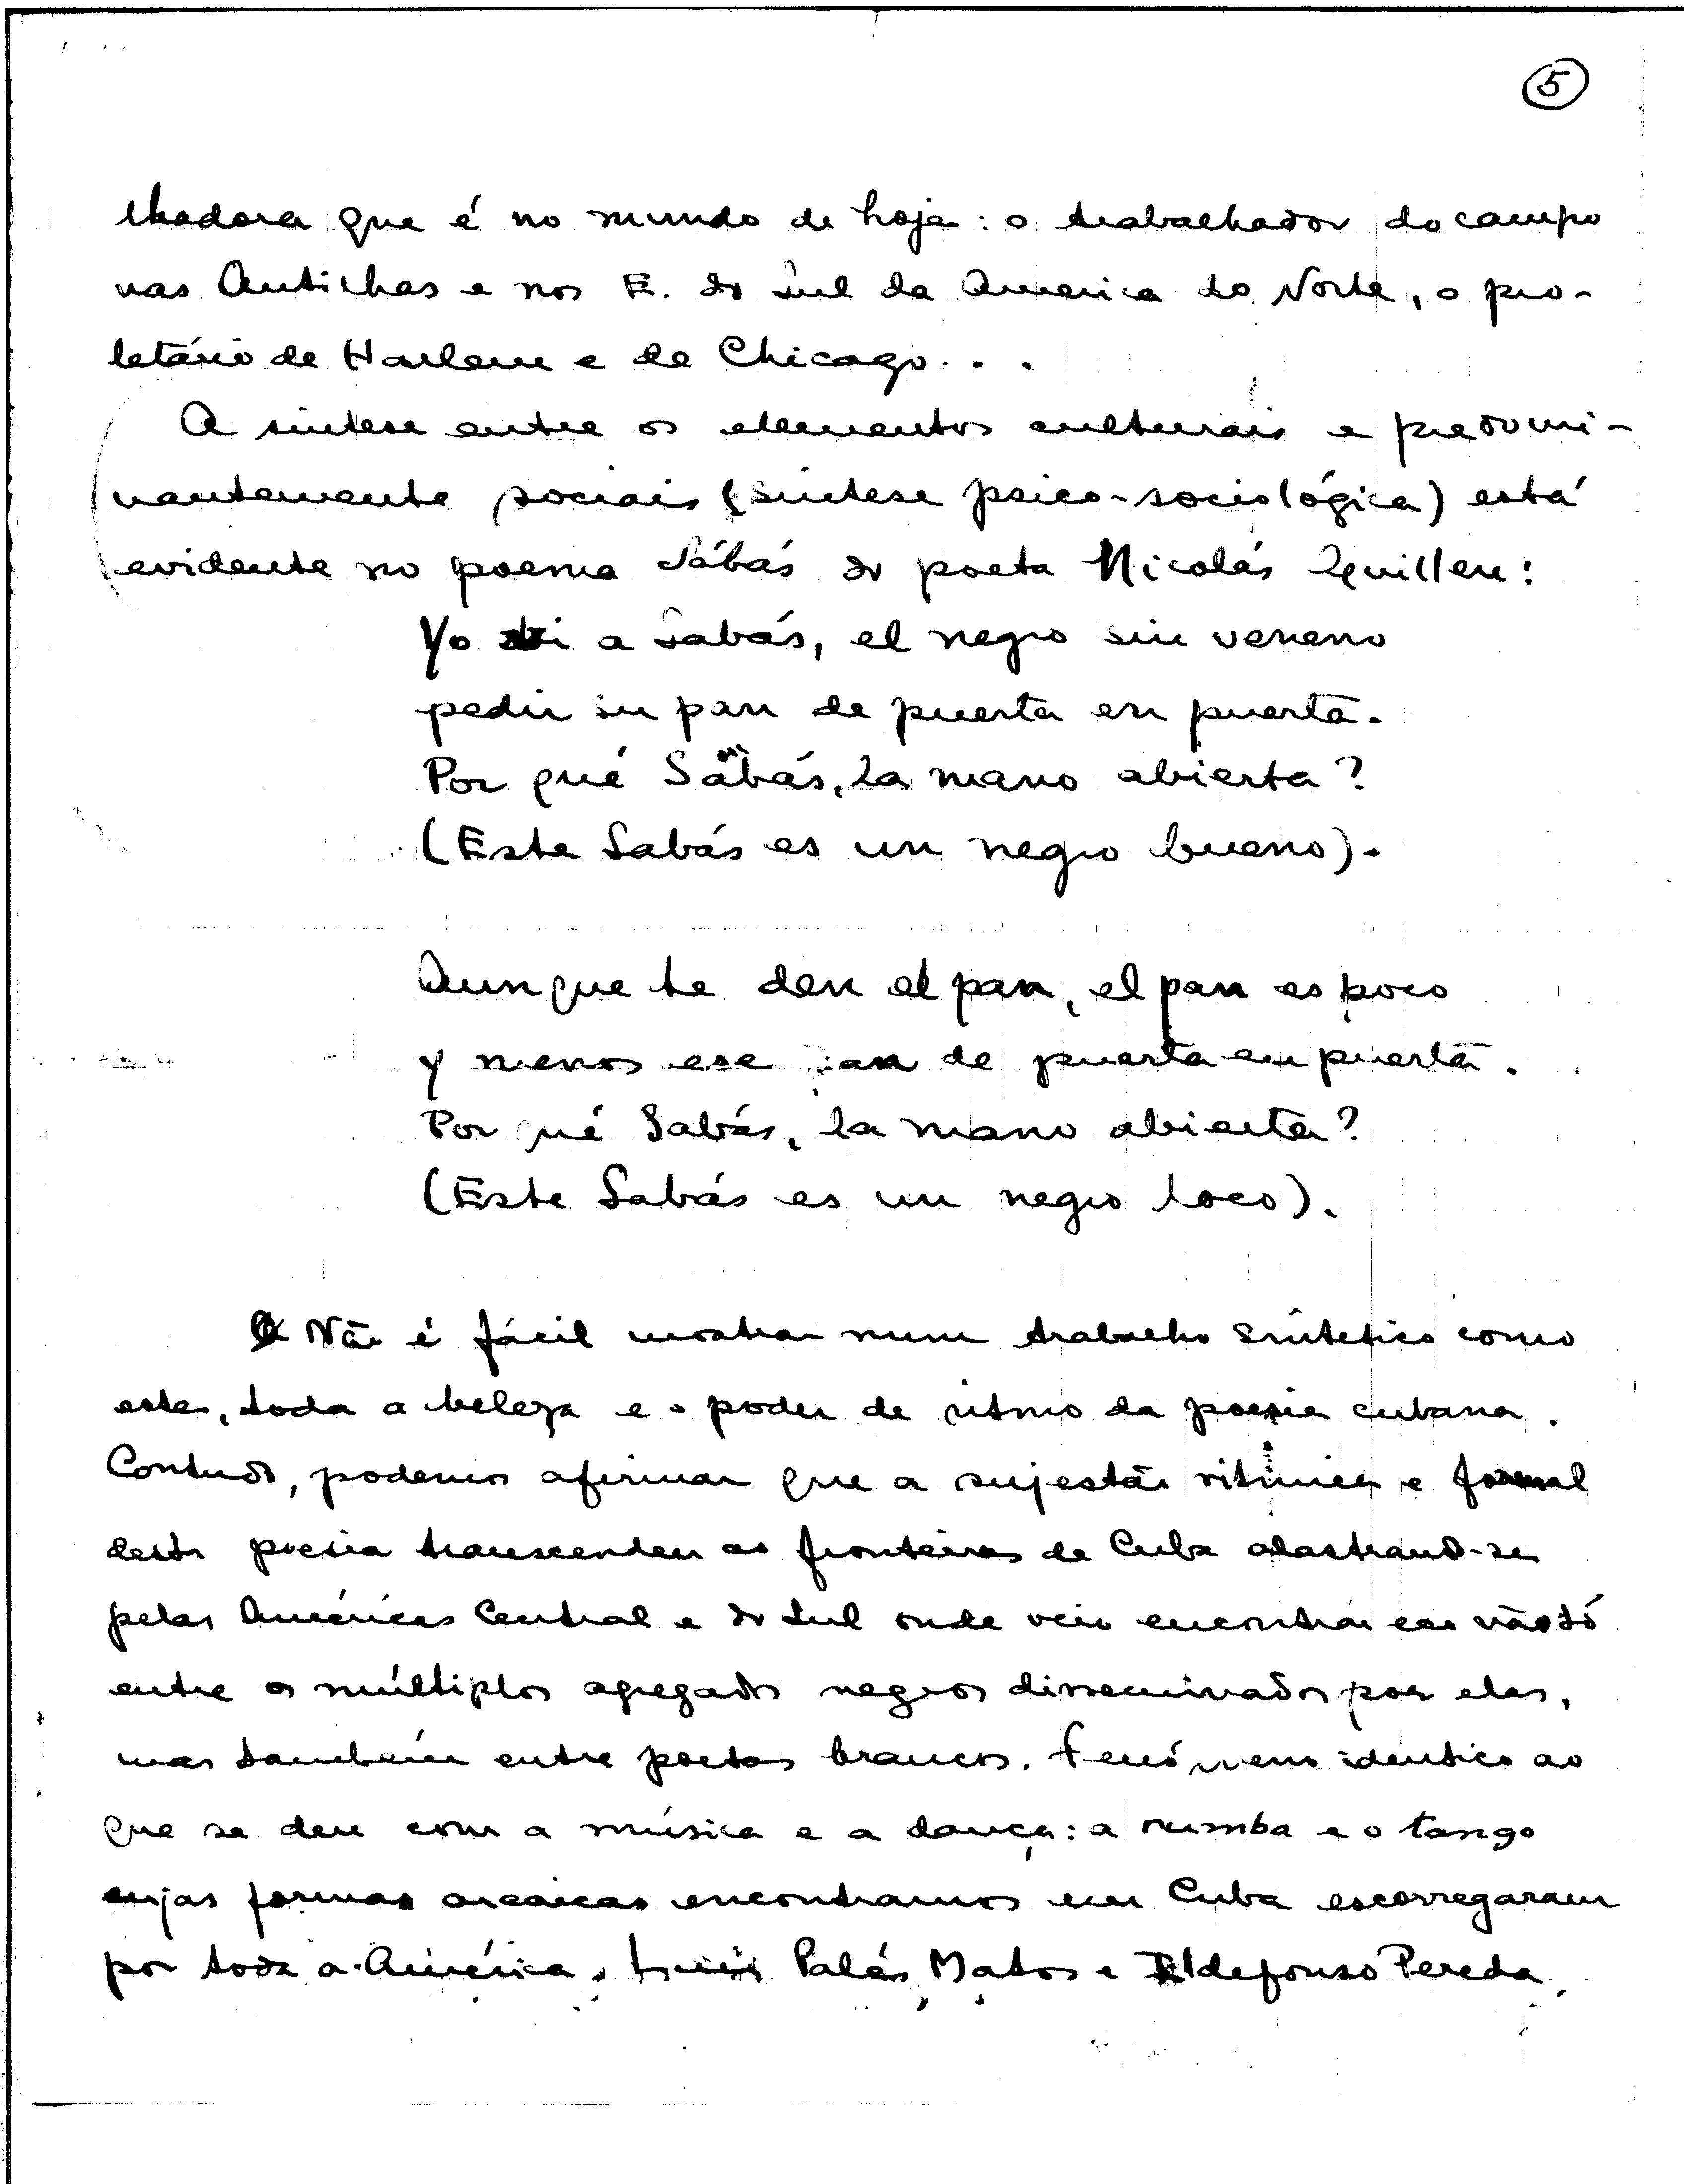 5
lhadora que é no mundo de hoje: o trabalhador do campo
nas Antilhas e nos E. do Sul da America do Norte, o pro-
letário de Harlem e de Chicago...
A sintese entre os elementos culturais e predomi-
nantemente sociais (sintese psico-sociológica) está
evidente no poema Sábás do poeta Nicolás Guillen:
Yo vi a Sabás, el negro sin veneno
pedir su pan de puerta en puerta.
Por qué Sabás, la mano abierta?
(Este Sabás es un negro bueno).
Aunque te den el pan, el pan es poco
y menos ese pan de puerta en puerta.
Por qué Sabás, la mano abierta?
(Este Sabás es un negro loco).
Não é fácil mostrar num trabalho sintetico como
este, toda a beleza e o poder de ritmo da poesia cubana.
Contudo, podemos afirmar que a sujestão ritimica e formal
desta poesia transcendeu as fronteiras de Cuba alastrando-se
pelas Américas Central e do Sul onde veio encontrar eco não só
entre os múltiplos agregados negros disseminados por elas,
mas também entre poetas brancos. Fenómeno identico ao
que se deu com a música e a dança: a rumba e o tango
cujas formas arcaicas encontramos em Cuba escorregaram
por toda a América. Luis Palés Matos e Ildefonso Pereda